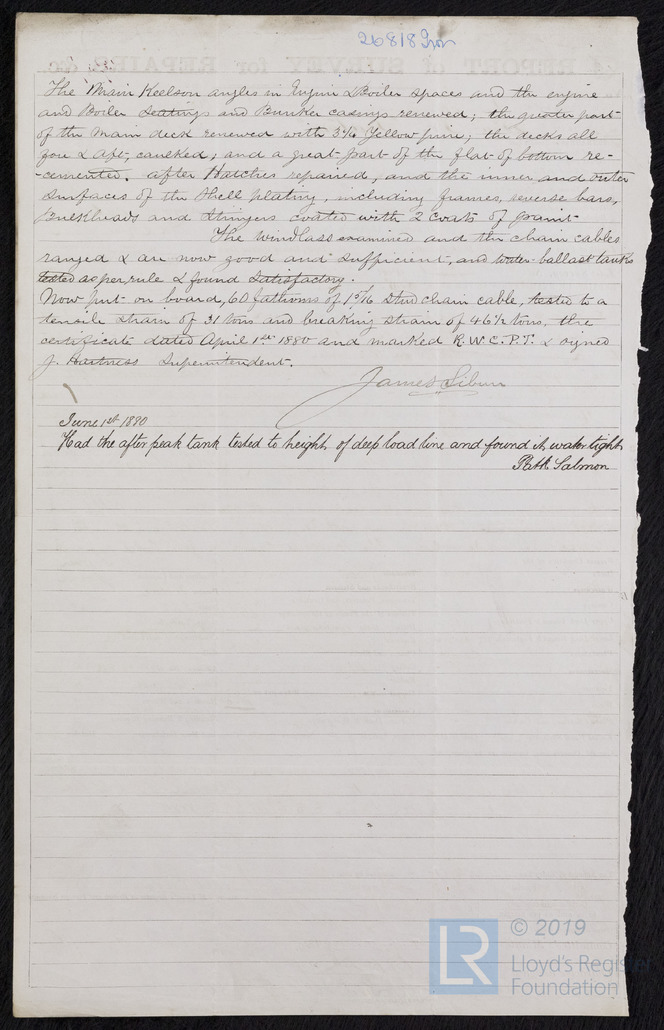 26818 Iron
The Main Keelson angles in Engine & Boiler spaces and the engine
and Boiler Seatings and Bunker casings renewed; the greater part
of the Main deck renewed with 3½ Yellow pine; the decks all
fore & aft, caulked; and a great part of the flat of bottom re-
-cemented. after Hatches repaired, and the inner and outer
surfaces of the Shell plating, including frames, reverse bars,
Bulkheads and Stringers coated with 2 coats of paint
The windlass examined and the chain cables
ranged & are now good and sufficient, and water ballast tanks
tested as per rule & found satisfactory.
Now put on board, 60 fathoms of 1 5/16 Stud chain cable, tested to a
tensile strain of 31 tons and breaking strain of 46½ tons, the
certificate dated April 1st 1880 and marked R.W.C.P.T. & signed
J. Hartness Superintendent.
James
June 1st 1880
Had the after peak tank tested to height of deep load line and found it water tight
Salmon
© 2019
Lloyd's Register
Foundation
LR